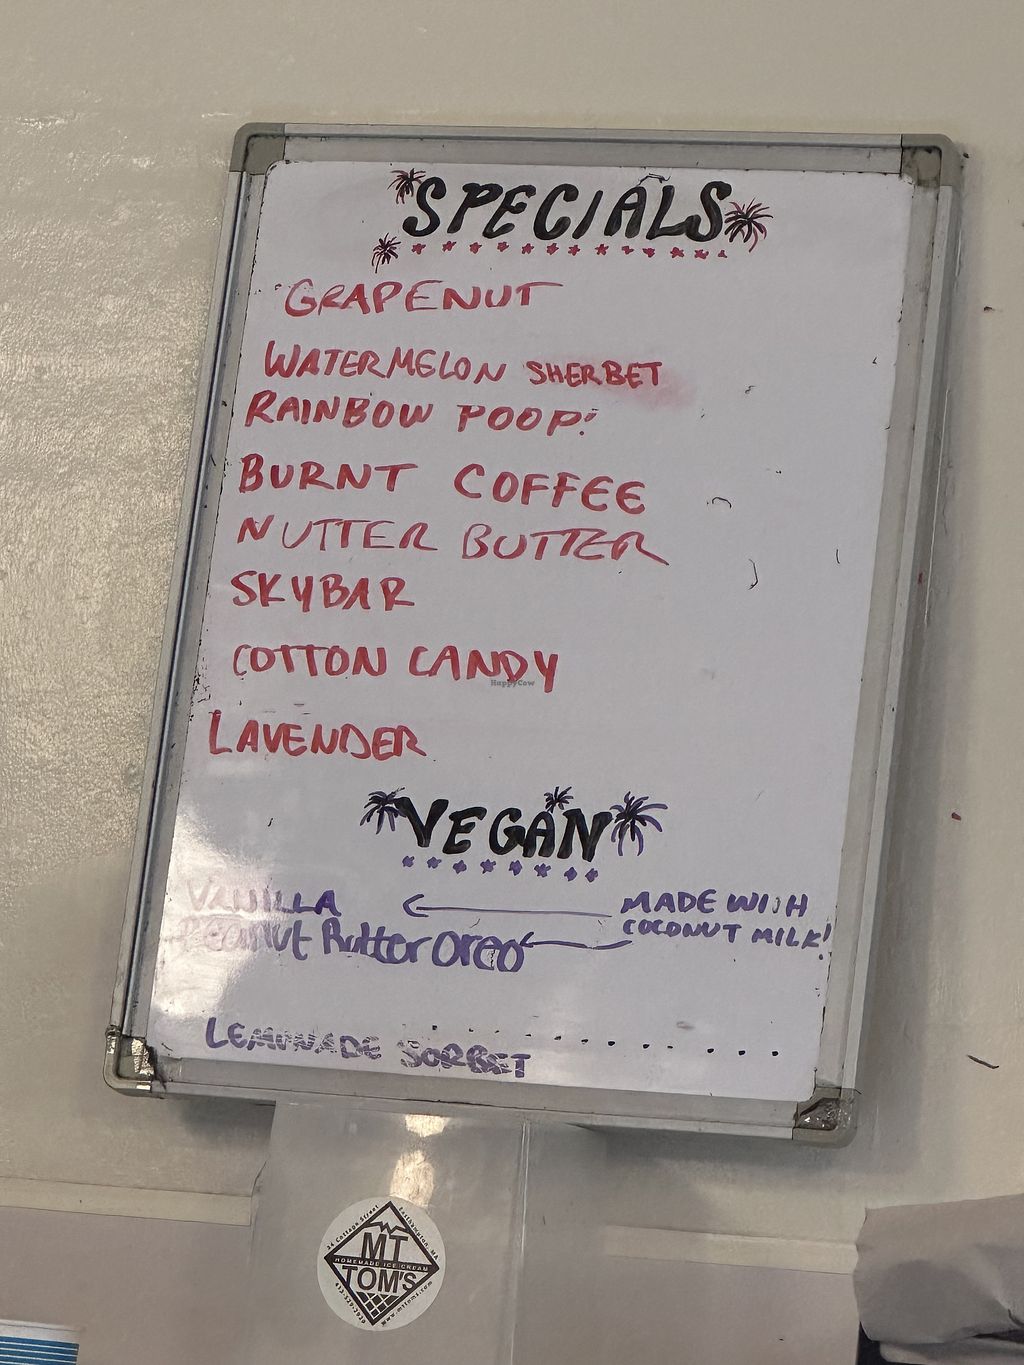 SPECIALS
GRAPENUT
WATERMELON SHERBET
RAINBOW POOP!
BURNT COFFEE
NUTTER BUTTER
SKYBAR
COTTON CANDY
HappyCow
LAVENDER
VEGAN
VANILLA
MADE WITH
COCONUT MILK!
Peanut Butter Oreo
LEMONADE SORBET
34 Cottage Street Easthampton, MA
MT
HOMEMADE ICE CREAM
TOM'S
www.mttoms.com